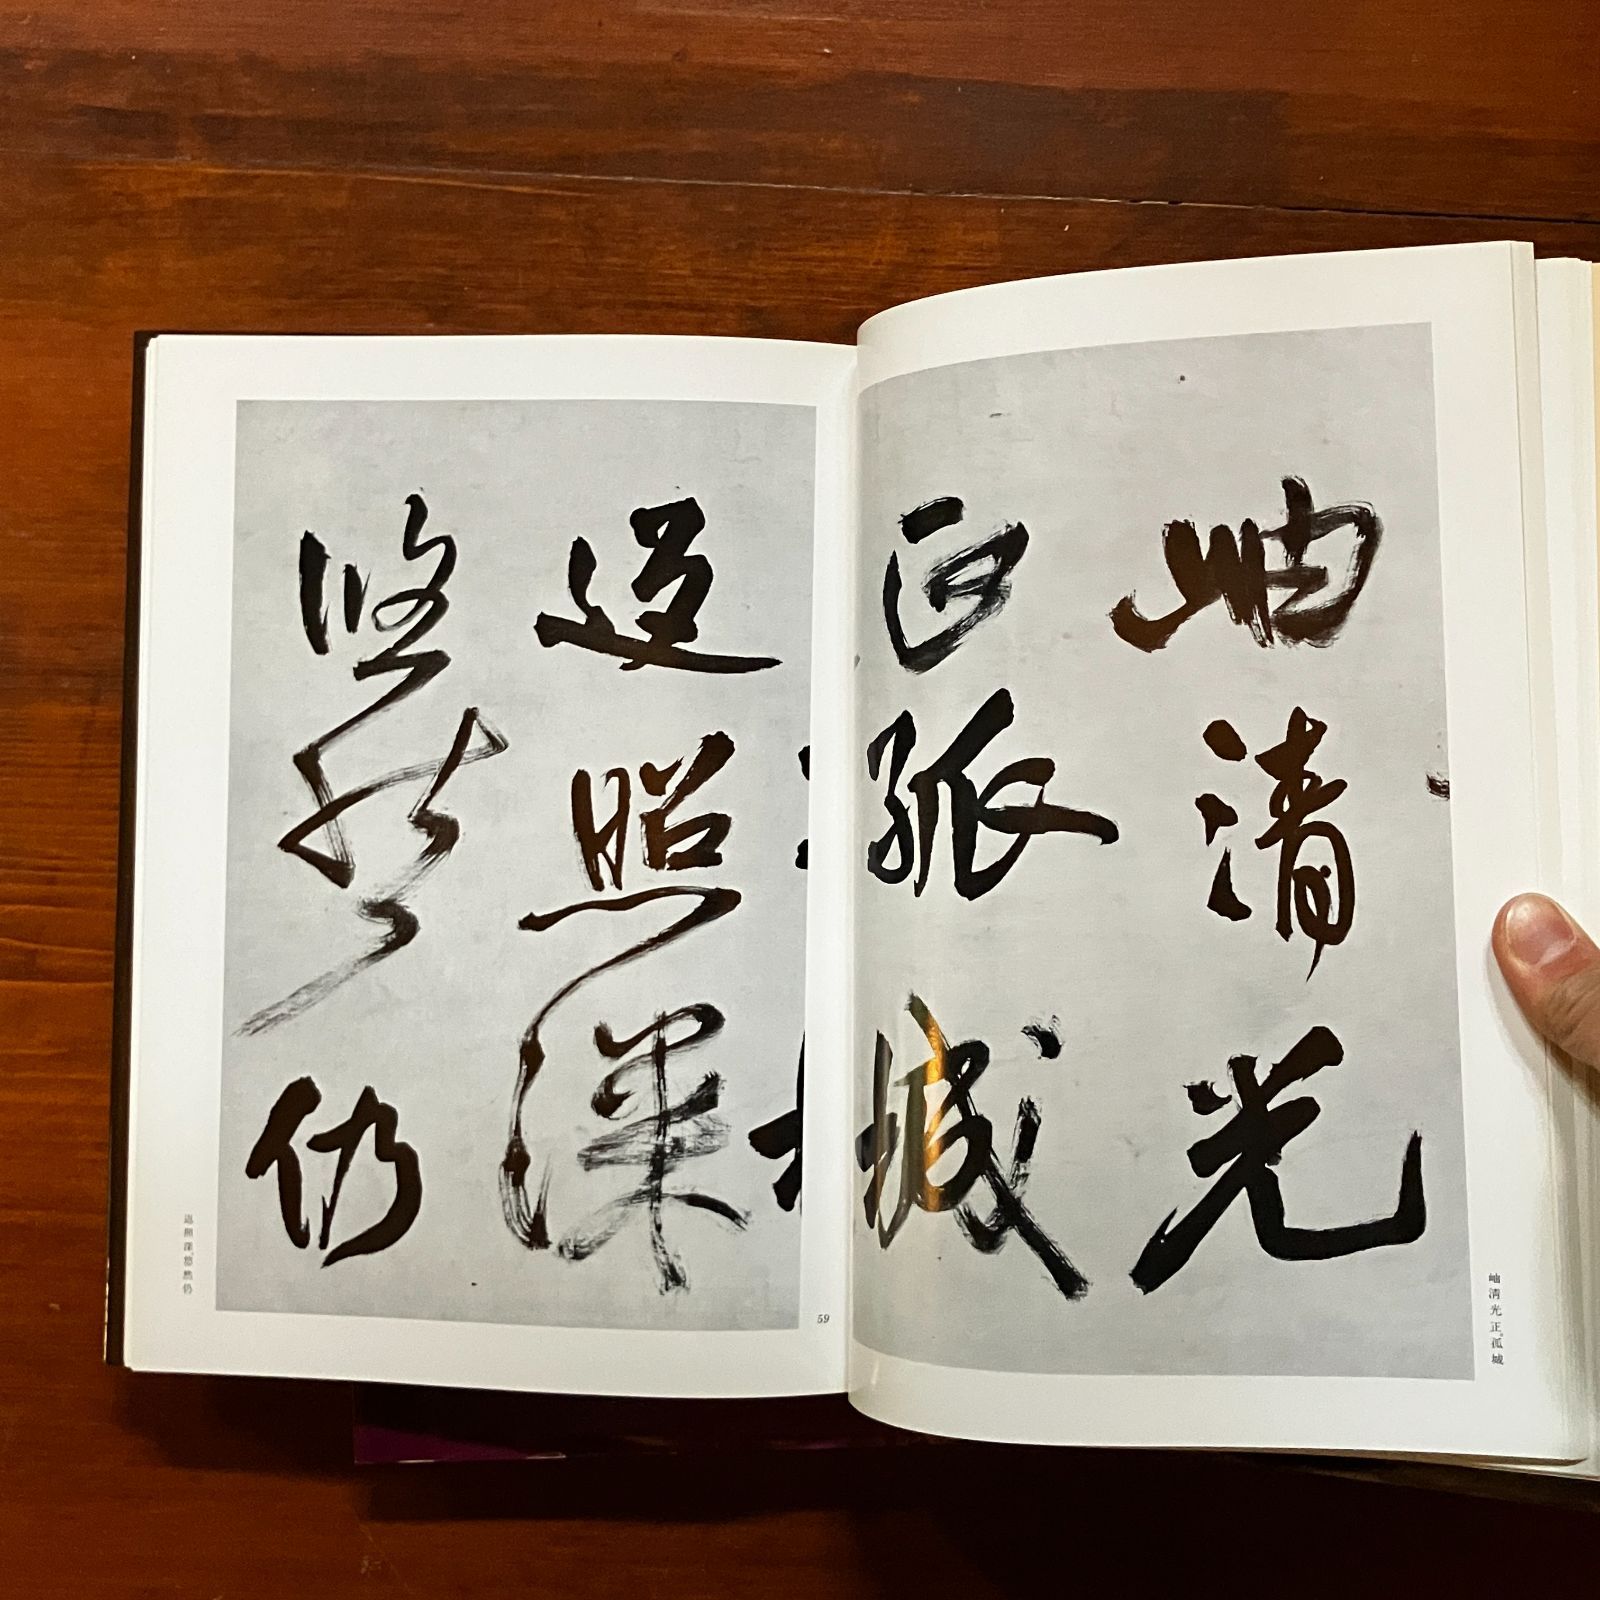 岫清光
正孤城
岫清光正。孤城
返照深
悠然仍
返照深。悠然仍
59